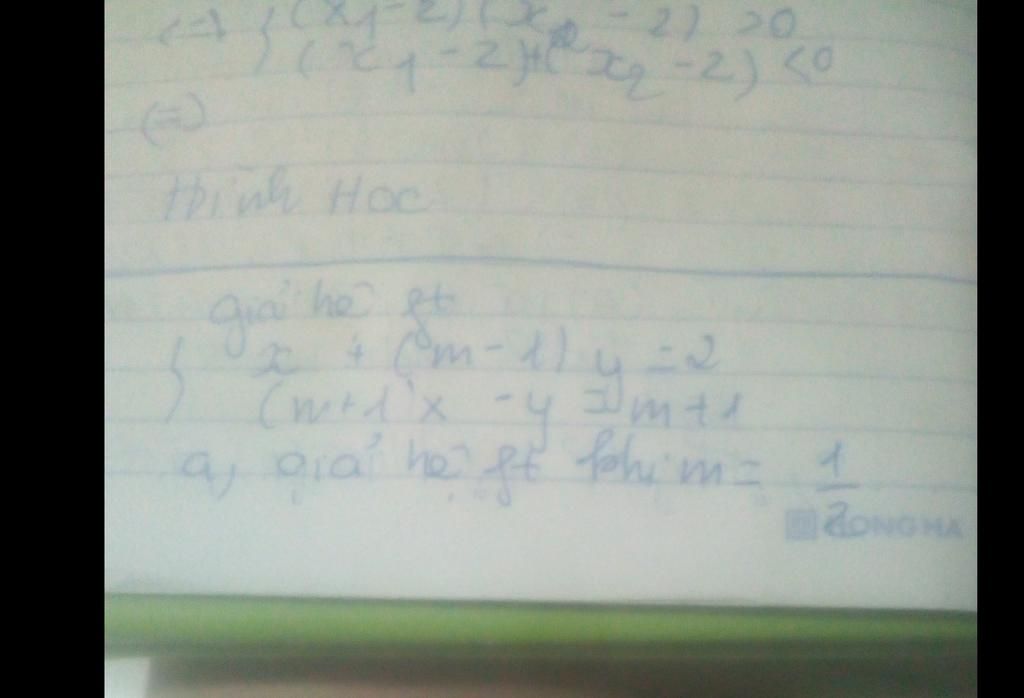 (=) { (x1 - 2) (x2 - 2) > 0
(x1 - 2) + (x2 - 2) < 0
(=)
Hình Học
giải hệ pt
{ x + (m - 1) y = 2
(m + 1) x - y = m + 1
a, giải hệ pt khi m = 1/2
HONG HA